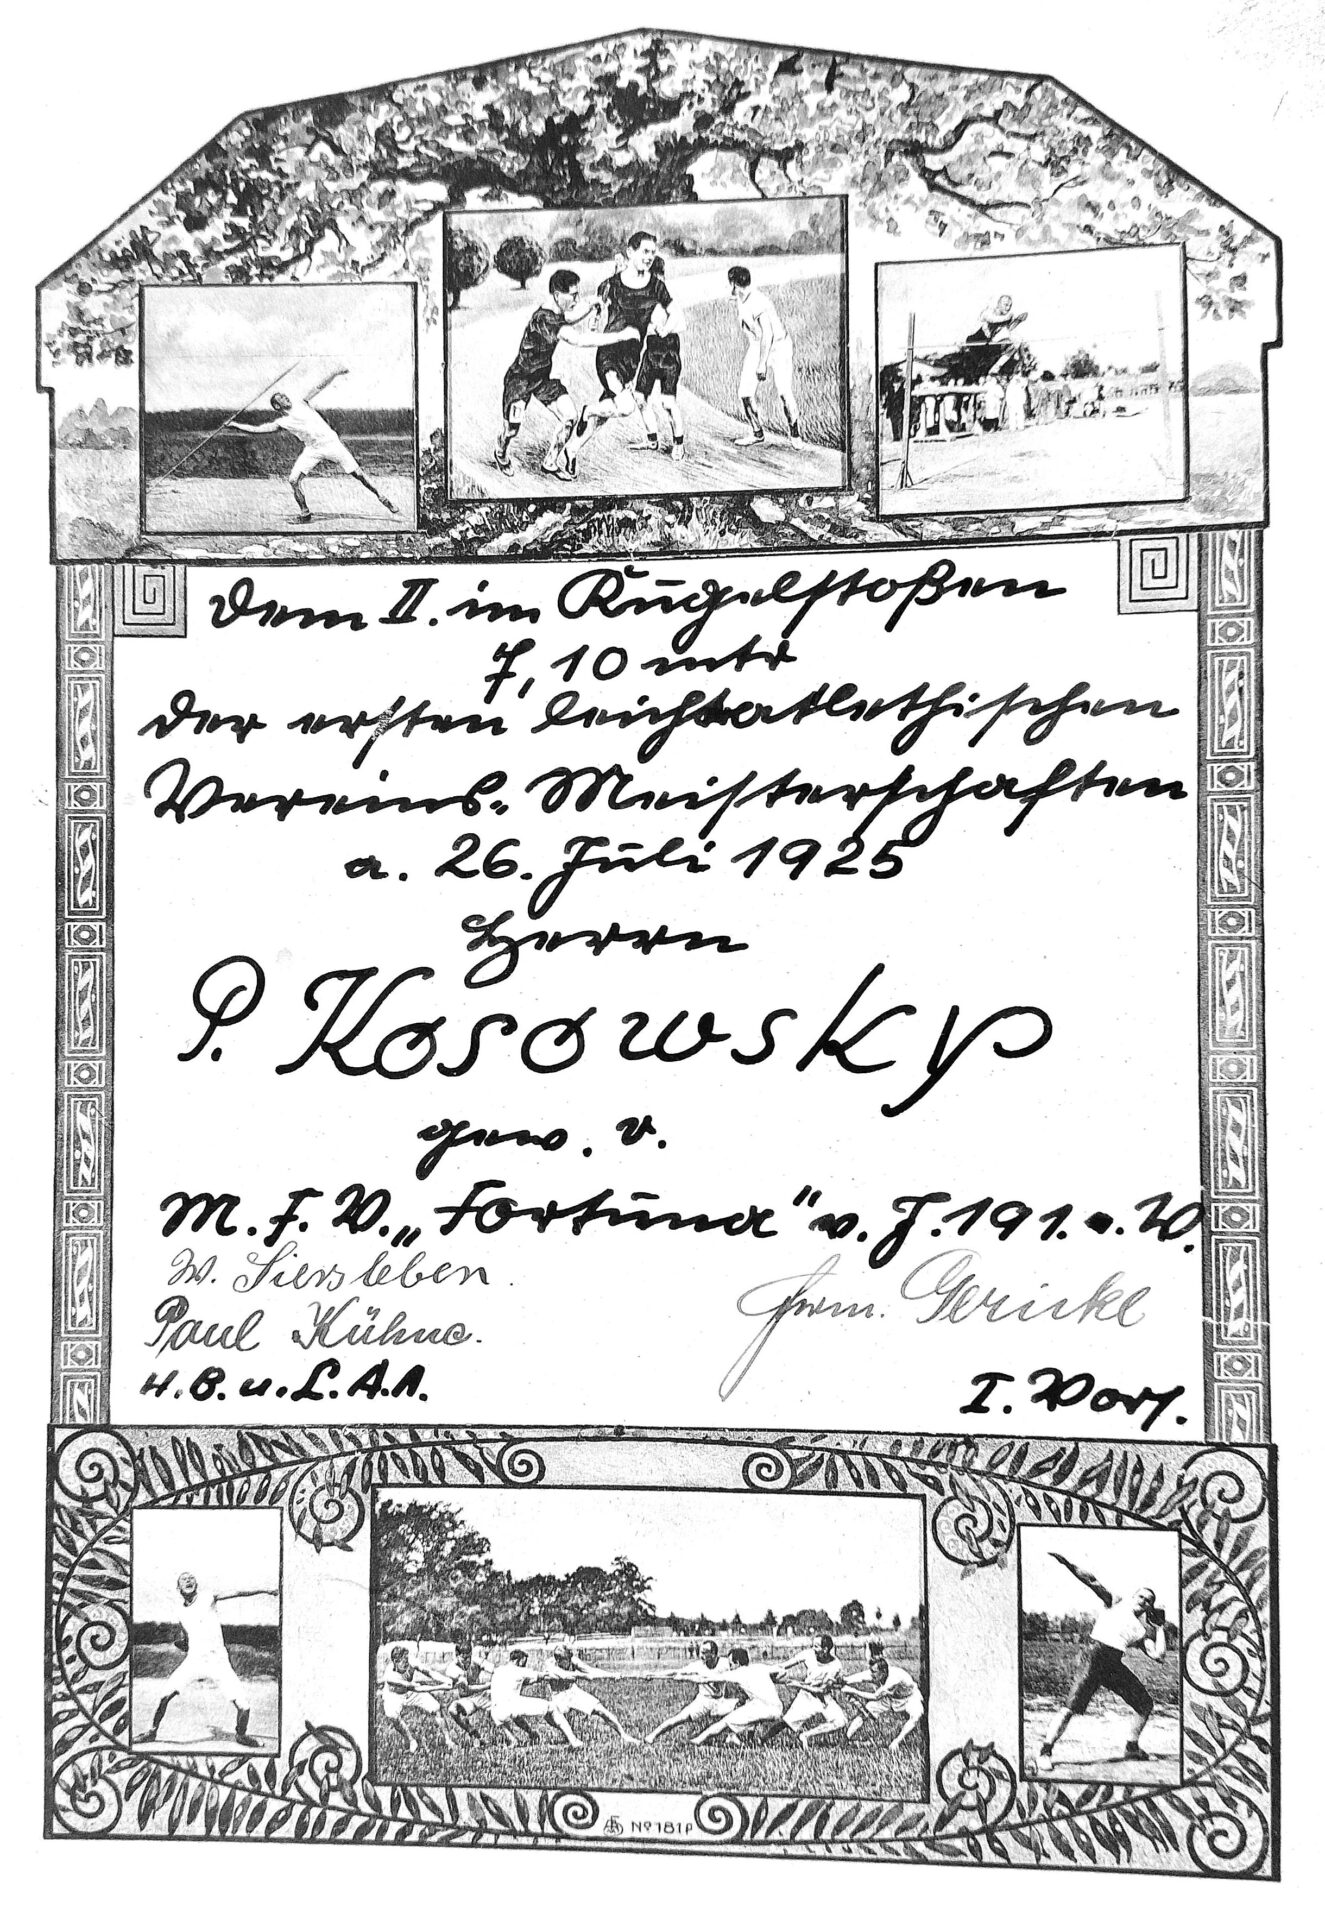 Dem II. im Kugelstoßen
7,10 mtr
der ersten leichtatlethischen
Vereins-Meisterschaften
a. 26. Juli 1925
Herrn
P. Kosowsky
gew. v.
M. F. V. „Fortuna" v. J. 191. a. W.
W. Siersleben.
Paul Kühne.
H. B. u. L. A. A.
Herm. Gericke
I. Vors.
No 181P